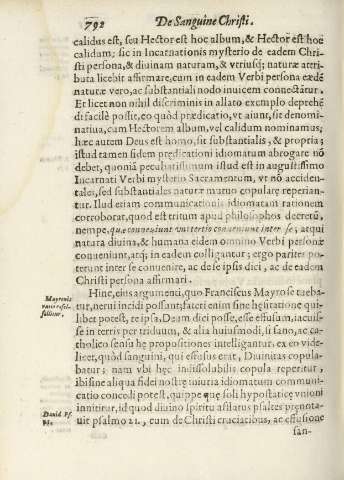 792
De Sanguine Christi.
calidus est, seu Hector est hoc album, & Hector est hoc
calidum; sic in Incarnationis mysterio de eadem Chri-
sti persona, & diuinam naturam, & vtriusq; naturæ attri-
buta licebit affirmare, cum in eadem Verbi persona eædē
naturæ vero, ac substantiali nodo inuicem connectātur.
Et licet non nihil discriminis in allato exemplo deprehē
di facilè possit, eo quòd prædicatio, vt aiunt, sit denomi-
natiua, cum Hectorem album, vel calidum nominamus;
hæc autem Deus est homo, sit substantialis, & propria;
istud tamen sidem prędicationi idiomatum abrogare nō
debet, quoniā pecubatissimum illud est in augustissimo
Incarnati Verbi mysterio Sacramentum, vt nō acciden-
talei, sed substantiales naturæ martuo copulatę reperian-
tur. Illud etiam communicationis idiomatum rationem
corroborat, quod est tritum apud philosophos decretū,
nempe, quæ conueniunt vni tertio conueniunt inter se; atqui
natura diuina, & humana eidem omnino Verbi personæ
conueniunt, atq; in eadem colligantur; ergo pariter po-
terunt inter se conuenire, ac de se ipsis dici, ac de eadem
Christi persona affirmari.
Hinc, eius argumenti, quo Franciscus Mayro se taeba-
tur, nerui incidi possunt; fateri enim sine hęsitatione qui-
libet potest, re ipsa, Deum dici posse, esse effusum, iacuis-
se in terris per triduum, & alia huiusmodi, si sano, ac ca-
tholico sensu hę propositiones intelligantur, ex eo vide-
licet, quòd sanguini, qui effusus erat, Diuinitas copula-
batur; nam vbi hęc indissolubilis copula reperitur,
ibi sine aliqua fidei nostrę iniuria idiomatum communi-
catio concedi potest, quippe quę soli hypostaticę vnioni
innititur, id quod diuino spiritu afflatus psaltes pręnota-
uit psalmo 21., cum de Christi cruciatibus, ac effusione
san-
Mayronis
ratio refel-
litur.
Dauid Ps.
21.